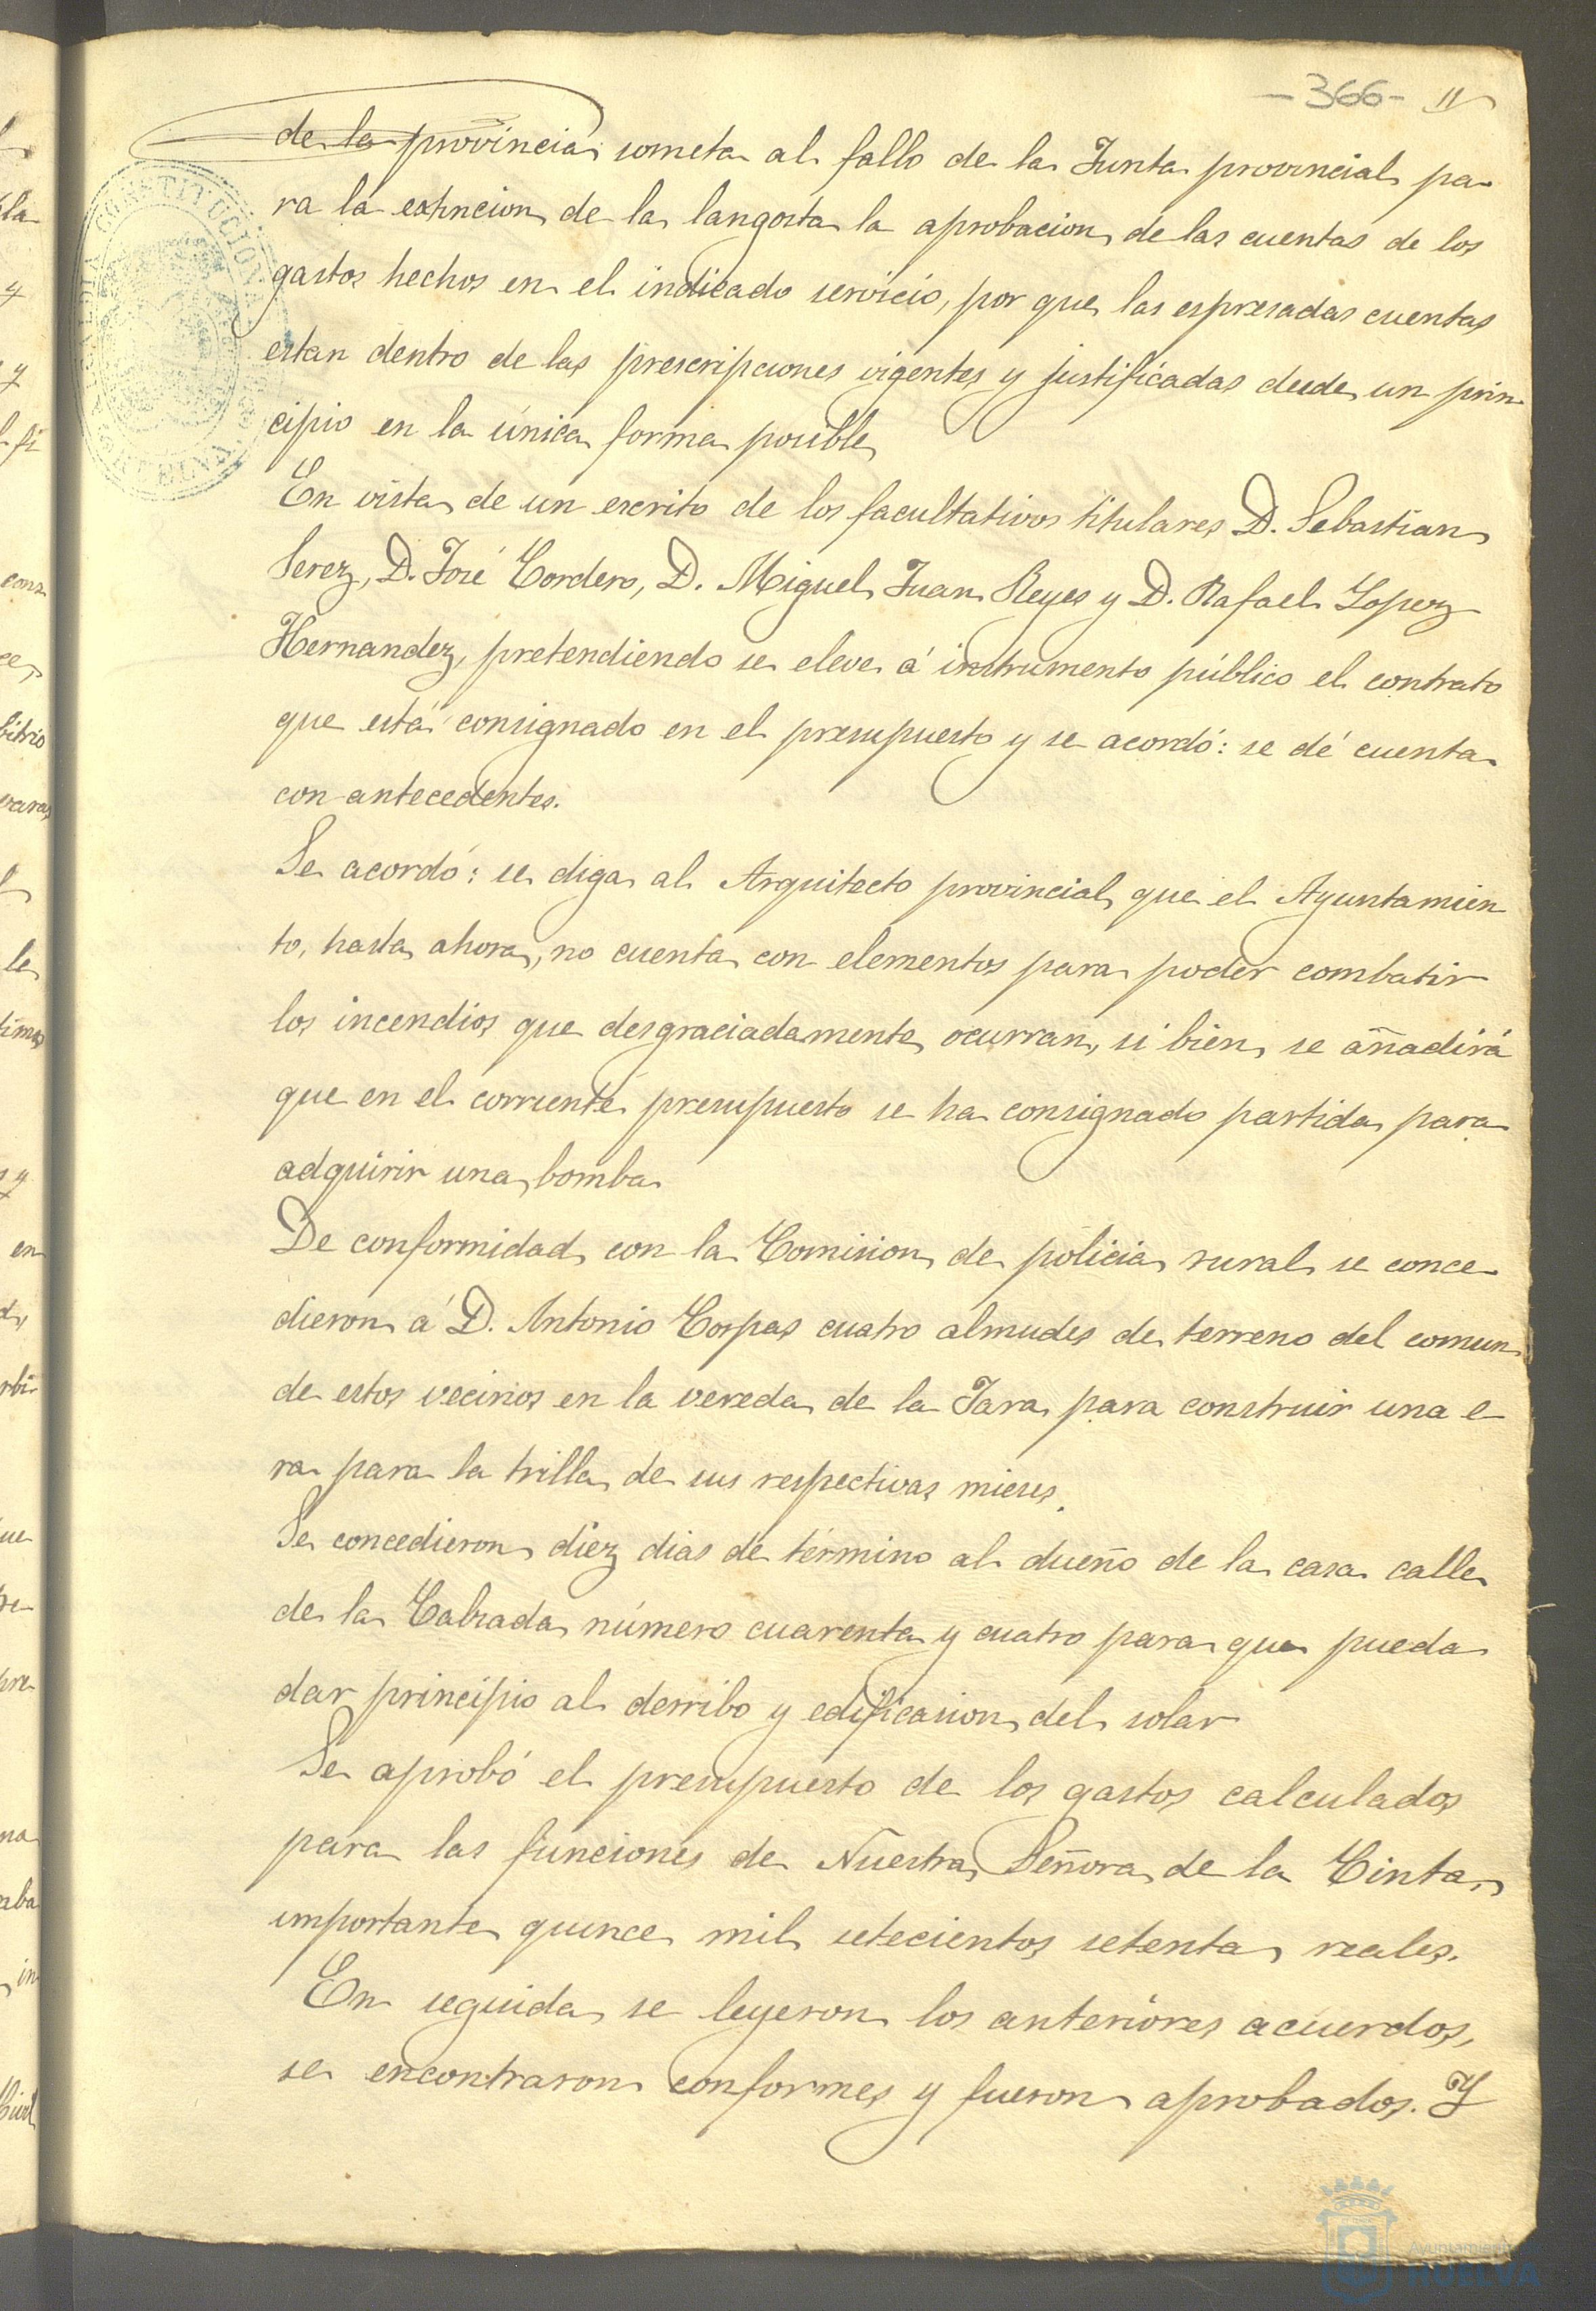 -366- 11
de la provincia, someta al fallo de la Junta provincial pa
ra la extincion de la langosta la aprobacion de las cuentas de los
gastos hechos en el indicado servicio, por que las espresadas cuentas
estan dentro de las prescripciones vigentes y justificadas desde un prin
cipio en la única forma posible
En vista de un escrito de los facultativos titulares D. Sebastian
Serez, D. José Cordero, D. Miguel Juan Reyes y D. Rafael Lopez
Hernandez, pretendiendo se eleve á instrumento público el contrato
que está consignado en el presupuesto y se acordó: se dé cuenta
con antecedentes.
Se acordó: se diga al Arquitecto provincial que el Ayuntamien
to, hasta ahora, no cuenta con elementos para poder combatir
los incendios que desgraciadamente ocurran, si bien se añadirá
que en el corriente presupuesto se ha consignado partida para
adquirir una bomba
De conformidad con la Comision de policia rural se conce
dieron á D. Antonio Corpas cuatro almudes de terreno del comun
de estos vecinos en la vereda de la Jara para construir una e
ra para la trilla de sus respectivas mieses.
Se concedieron diez dias de término al dueño de la casa calle
de la Calzada número cuarenta y cuatro para que pueda
dar principio al derribo y edificasion del solar
Se aprobó el presupuesto de los gastos calculados
para las funciones de Nuestra Señora de la Cinta,
importante quince mil setecientos setenta reales.
En seguida se leyeron los anteriores acuerdos,
se encontraron conformes y fueron aprobados. Y
Ayuntamiento de
HUELVA